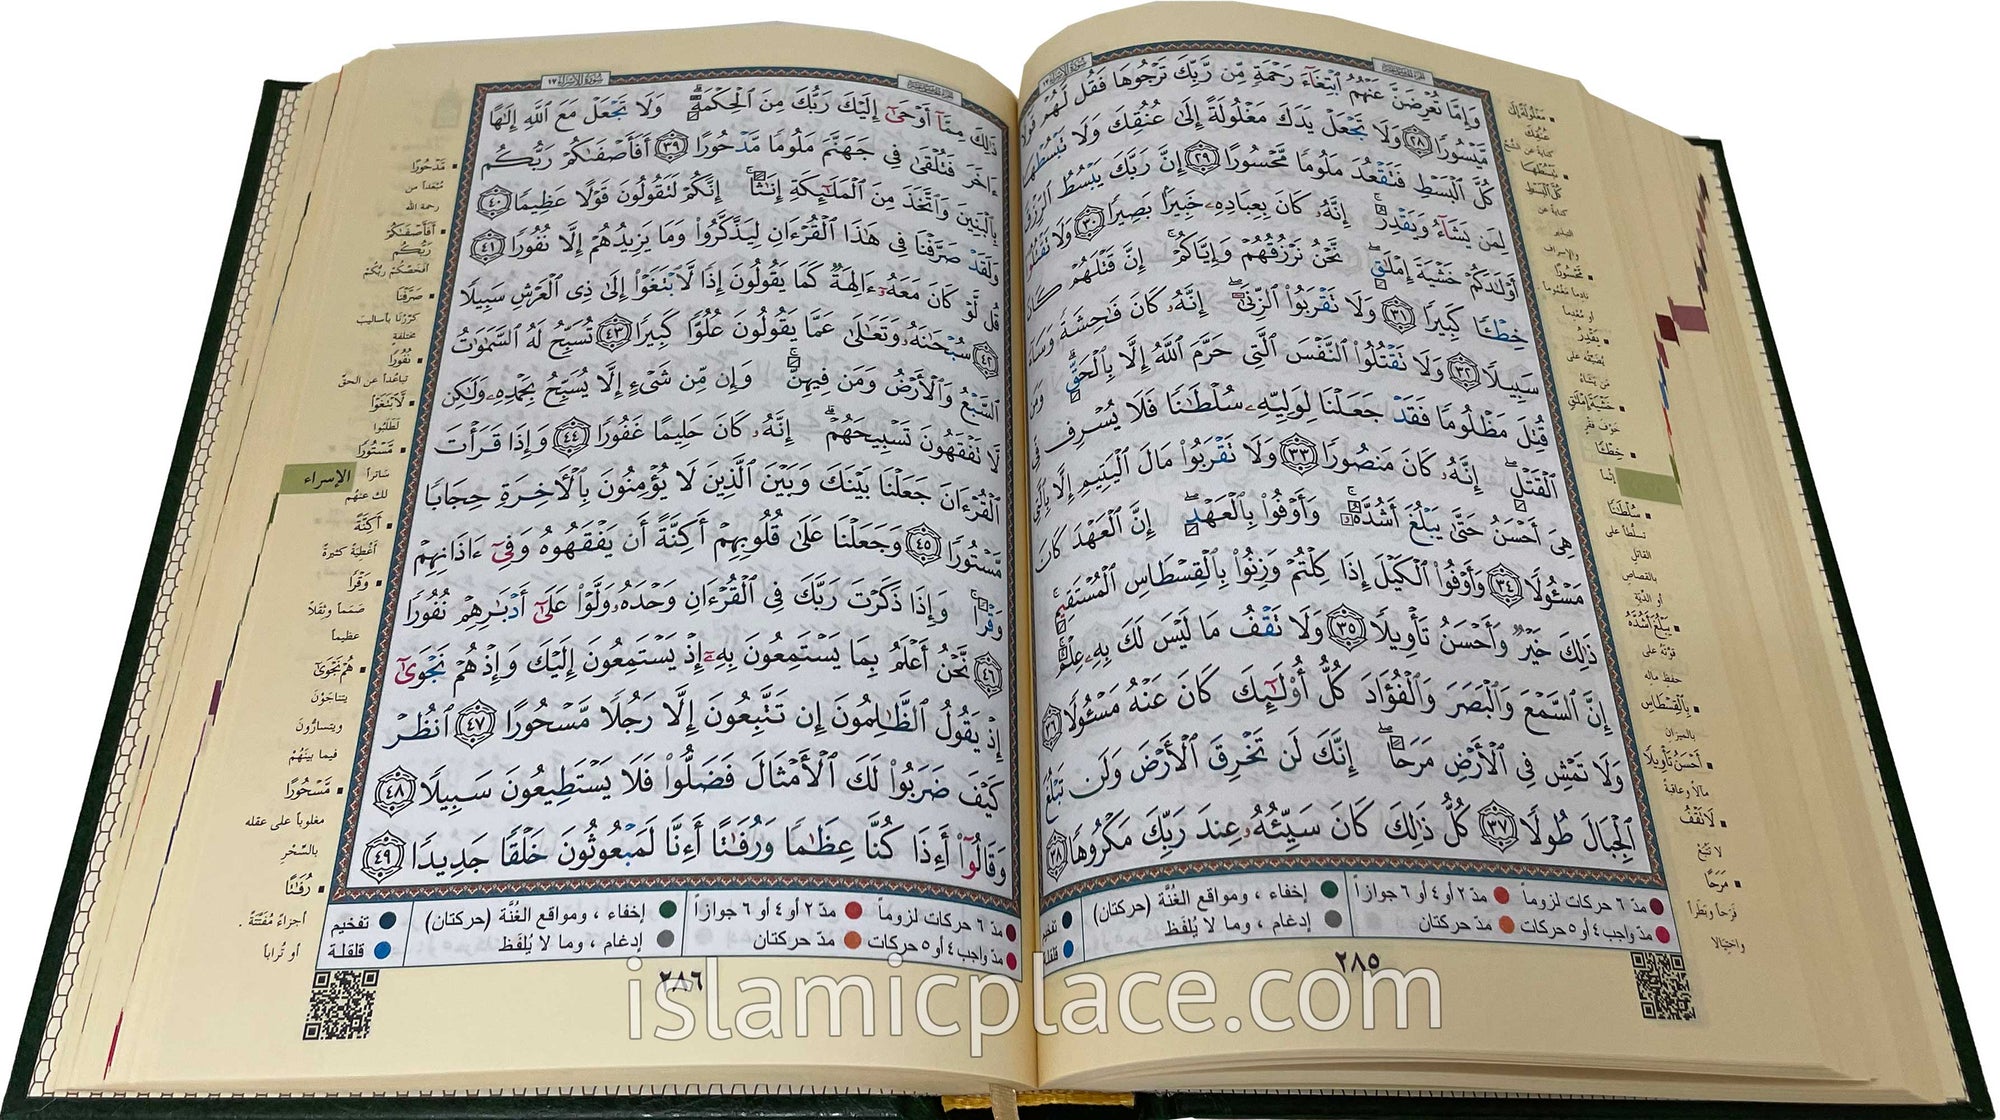 سُورَةُ الإِسْرَاءِ ١٧
وَإِمَّا تُعْرِضَنَّ عَنْهُمُ ٱبْتِغَآءَ رَحْمَةٍ مِّن رَّبِّكَ تَرْجُوهَا فَقُل لَّهُمْ قَوْلًا
مَّيْسُورًا ٢٨ وَلَا تَجْعَلْ يَدَكَ مَغْلُولَةً إِلَىٰ عُنُقِكَ وَلَا تَبْسُطْهَا
كُلَّ ٱلْبَسْطِ فَتَقْعُدَ مَلُومًا مَّحْسُورًا ٢٩ إِنَّ رَبَّكَ يَبْسُطُ ٱلرِّزْقَ
لِمَن يَشَآءُ وَيَقْدِرُ ۚ إِنَّهُۥ كَانَ بِعِبَادِهِۦ خَبِيرًۢا بَصِيرًا ٣٠ وَلَا تَقْتُلُوٓا۟
أَوْلَـٰدَكُمْ خَشْيَةَ إِمْلَـٰقٍ ۖ نَّحْنُ نَرْزُقُهُمْ وَإِيَّاكُمْ ۚ إِنَّ قَتْلَهُمْ كَانَ
خِطْـًٔا كَبِيرًا ٣١ وَلَا تَقْرَبُوا۟ ٱلزِّنَىٰٓ ۖ إِنَّهُۥ كَانَ فَـٰحِشَةً وَسَآءَ
سَبِيلًا ٣٢ وَلَا تَقْتُلُوا۟ ٱلنَّفْسَ ٱلَّتِى حَرَّمَ ٱللَّهُ إِلَّا بِٱلْحَقِّ ۗ وَمَن
قُتِلَ مَظْلُومًا فَقَدْ جَعَلْنَا لِوَلِيِّهِۦ سُلْطَـٰنًا فَلَا يُسْرِف فِّى
ٱلْقَتْلِ ۖ إِنَّهُۥ كَانَ مَنصُورًا ٣٣ وَلَا تَقْرَبُوا۟ مَالَ ٱلْيَتِيمِ إِلَّا بِٱلَّتِى
هِىَ أَحْسَنُ حَتَّىٰ يَبْلُغَ أَشُدَّهُۥ ۚ وَأَوْفُوا۟ بِٱلْعَهْدِ ۖ إِنَّ ٱلْعَهْدَ كَانَ
مَسْـُٔولًا ٣٤ وَأَوْفُوا۟ ٱلْكَيْلَ إِذَا كِلْتُمْ وَزِنُوا۟ بِٱلْقِسْطَاسِ ٱلْمُسْتَقِيمِ ۚ
ذَٰلِكَ خَيْرٌ وَأَحْسَنُ تَأْوِيلًا ٣٥ وَلَا تَقْفُ مَا لَيْسَ لَكَ بِهِۦ عِلْمٌ ۚ
إِنَّ ٱلسَّمْعَ وَٱلْبَصَرَ وَٱلْفُؤَادَ كُلُّ أُو۟لَـٰٓئِكَ كَانَ عَنْهُ مَسْـُٔولًا ٣٦
وَلَا تَمْشِ فِى ٱلْأَرْضِ مَرَحًا ۖ إِنَّكَ لَن تَخْرِقَ ٱلْأَرْضَ وَلَن تَبْلُغَ
ٱلْجِبَالَ طُولًا ٣٧ كُلُّ ذَٰلِكَ كَانَ سَيِّئُهُۥ عِندَ رَبِّكَ مَكْرُوهًا ٣٨
مَغْلُولَةً إِلَىٰ
عُنُقِكَ
كناية عن الشحّ
تَبْسُطْهَا
كُلَّ ٱلْبَسْطِ
كناية عن
التبذير
والإسراف
مَّحْسُورًا
نادماً مغموماً
أو مُعدماً
يَقْدِرُ
يُضيّقه على
من يشاء
خَشْيَةَ إِمْلَـٰقٍ
خوف فقر
خِطْـًٔا
إثماً
سُلْطَـٰنًا
تسلّطاً على
القاتل
بالقصاص
أو الدّيّة
يَبْلُغَ أَشُدَّهُۥ
قوّته على
حفظ ماله
بِٱلْقِسْطَاسِ
بالميزان
أَحْسَنُ تَأْوِيلًا
مآلاً وعاقبةً
لَا تَقْفُ
لا تتبع
مَرَحًا
فرحاً وبطراً
واختيالاً
مدّ ٦ حركات لزوماً
مدّ ٢ أو ٤ أو ٦ جوازاً
إخفاء ، ومواقع الغُنَّة (حركتان)
تفخيم
مدّ واجب ٤ أو ٥ حركات
مدّ حركتان
إدغام ، وما لا يُلفَظ
قلقلة
٢٨٥
سُورَةُ الإِسْرَاءِ ١٧
ذَٰلِكَ مِمَّآ أَوْحَىٰٓ إِلَيْكَ رَبُّكَ مِنَ ٱلْحِكْمَةِ ۗ وَلَا تَجْعَلْ مَعَ ٱللَّهِ إِلَـٰهًا
ءَاخَرَ فَتُلْقَىٰ فِى جَهَنَّمَ مَلُومًا مَّدْحُورًا ٣٩ أَفَأَصْفَىٰكُمْ رَبُّكُم
بِٱلْبَنِينَ وَٱتَّخَذَ مِنَ ٱلْمَلَـٰٓئِكَةِ إِنَـٰثًا ۚ إِنَّكُمْ لَتَقُولُونَ قَوْلًا عَظِيمًا ٤٠
وَلَقَدْ صَرَّفْنَا فِى هَـٰذَا ٱلْقُرْءَانِ لِيَذَّكَّرُوا۟ وَمَا يَزِيدُهُمْ إِلَّا نُفُورًا ٤١
قُل لَّوْ كَانَ مَعَهُۥٓ ءَالِهَةٌ كَمَا يَقُولُونَ إِذًا لَّٱبْتَغَوْا۟ إِلَىٰ ذِى ٱلْعَرْشِ سَبِيلًا
٤٢ سُبْحَـٰنَهُۥ وَتَعَـٰلَىٰ عَمَّا يَقُولُونَ عُلُوًّا كَبِيرًا ٤٣ تُسَبِّحُ لَهُ ٱلسَّمَـٰوَٰتُ
ٱلسَّبْعُ وَٱلْأَرْضُ وَمَن فِيهِنَّ ۚ وَإِن مِّن شَىْءٍ إِلَّا يُسَبِّحُ بِحَمْدِهِۦ وَلَـٰكِن
لَّا تَفْقَهُونَ تَسْبِيحَهُمْ ۗ إِنَّهُۥ كَانَ حَلِيمًا غَفُورًا ٤٤ وَإِذَا قَرَأْتَ
ٱلْقُرْءَانَ جَعَلْنَا بَيْنَكَ وَبَيْنَ ٱلَّذِينَ لَا يُؤْمِنُونَ بِٱلْـَٔاخِرَةِ حِجَابًا
مَّسْتُورًا ٤٥ وَجَعَلْنَا عَلَىٰ قُلُوبِهِمْ أَكِنَّةً أَن يَفْقَهُوهُ وَفِىٓ ءَاذَانِهِمْ
وَقْرًا ۚ وَإِذَا ذَكَرْتَ رَبَّكَ فِى ٱلْقُرْءَانِ وَحْدَهُۥ وَلَّوْا۟ عَلَىٰٓ أَدْبَـٰرِهِمْ نُفُورًا
٤٦ نَّحْنُ أَعْلَمُ بِمَا يَسْتَمِعُونَ بِهِۦٓ إِذْ يَسْتَمِعُونَ إِلَيْكَ وَإِذْ هُمْ نَجْوَىٰٓ
إِذْ يَقُولُ ٱلظَّـٰلِمُونَ إِن تَتَّبِعُونَ إِلَّا رَجُلًا مَّسْحُورًا ٤٧ ٱنظُرْ
كَيْفَ ضَرَبُوا۟ لَكَ ٱلْأَمْثَالَ فَضَلُّوا۟ فَلَا يَسْتَطِيعُونَ سَبِيلًا ٤٨
وَقَالُوٓا۟ أَءِذَا كُنَّا عِظَـٰمًا وَرُفَـٰتًا أَءِنَّا لَمَبْعُوثُونَ خَلْقًا جَدِيدًا ٤٩
مَّدْحُورًا
مُبْعَداً من
رحمة الله
أَفَأَصْفَىٰكُمْ
رَبُّكُم
أفخصّكم ربّكم
صَرَّفْنَا
كرّرنا بأساليب
مختلفة
نُفُورًا
تباعُداً عن الحقّ
لَّٱبْتَغَوْا۟
لَطَلَبُوا
مَّسْتُورًا
ساتراً
لك عنهُم
أَكِنَّةً
أغطيةً كثيرةً
وَقْرًا
صَمَماً وثقلاً
عظيماً
هُمْ نَجْوَىٰٓ
يتناجَوْن
ويتسارُّون
فيما بينهُمْ
مَّسْحُورًا
مغلوباً على عقله
بالسّحْر
رُفَـٰتًا
أجزاءً مُفتّتةً .
أو تُراباً
الإسراء
مدّ ٦ حركات لزوماً
مدّ ٢ أو ٤ أو ٦ جوازاً
إخفاء ، ومواقع الغُنَّة (حركتان)
تفخيم
مدّ واجب ٤ أو ٥ حركات
مدّ حركتان
إدغام ، وما لا يُلفَظ
قلقلة
٢٨٦
islamicplace.com